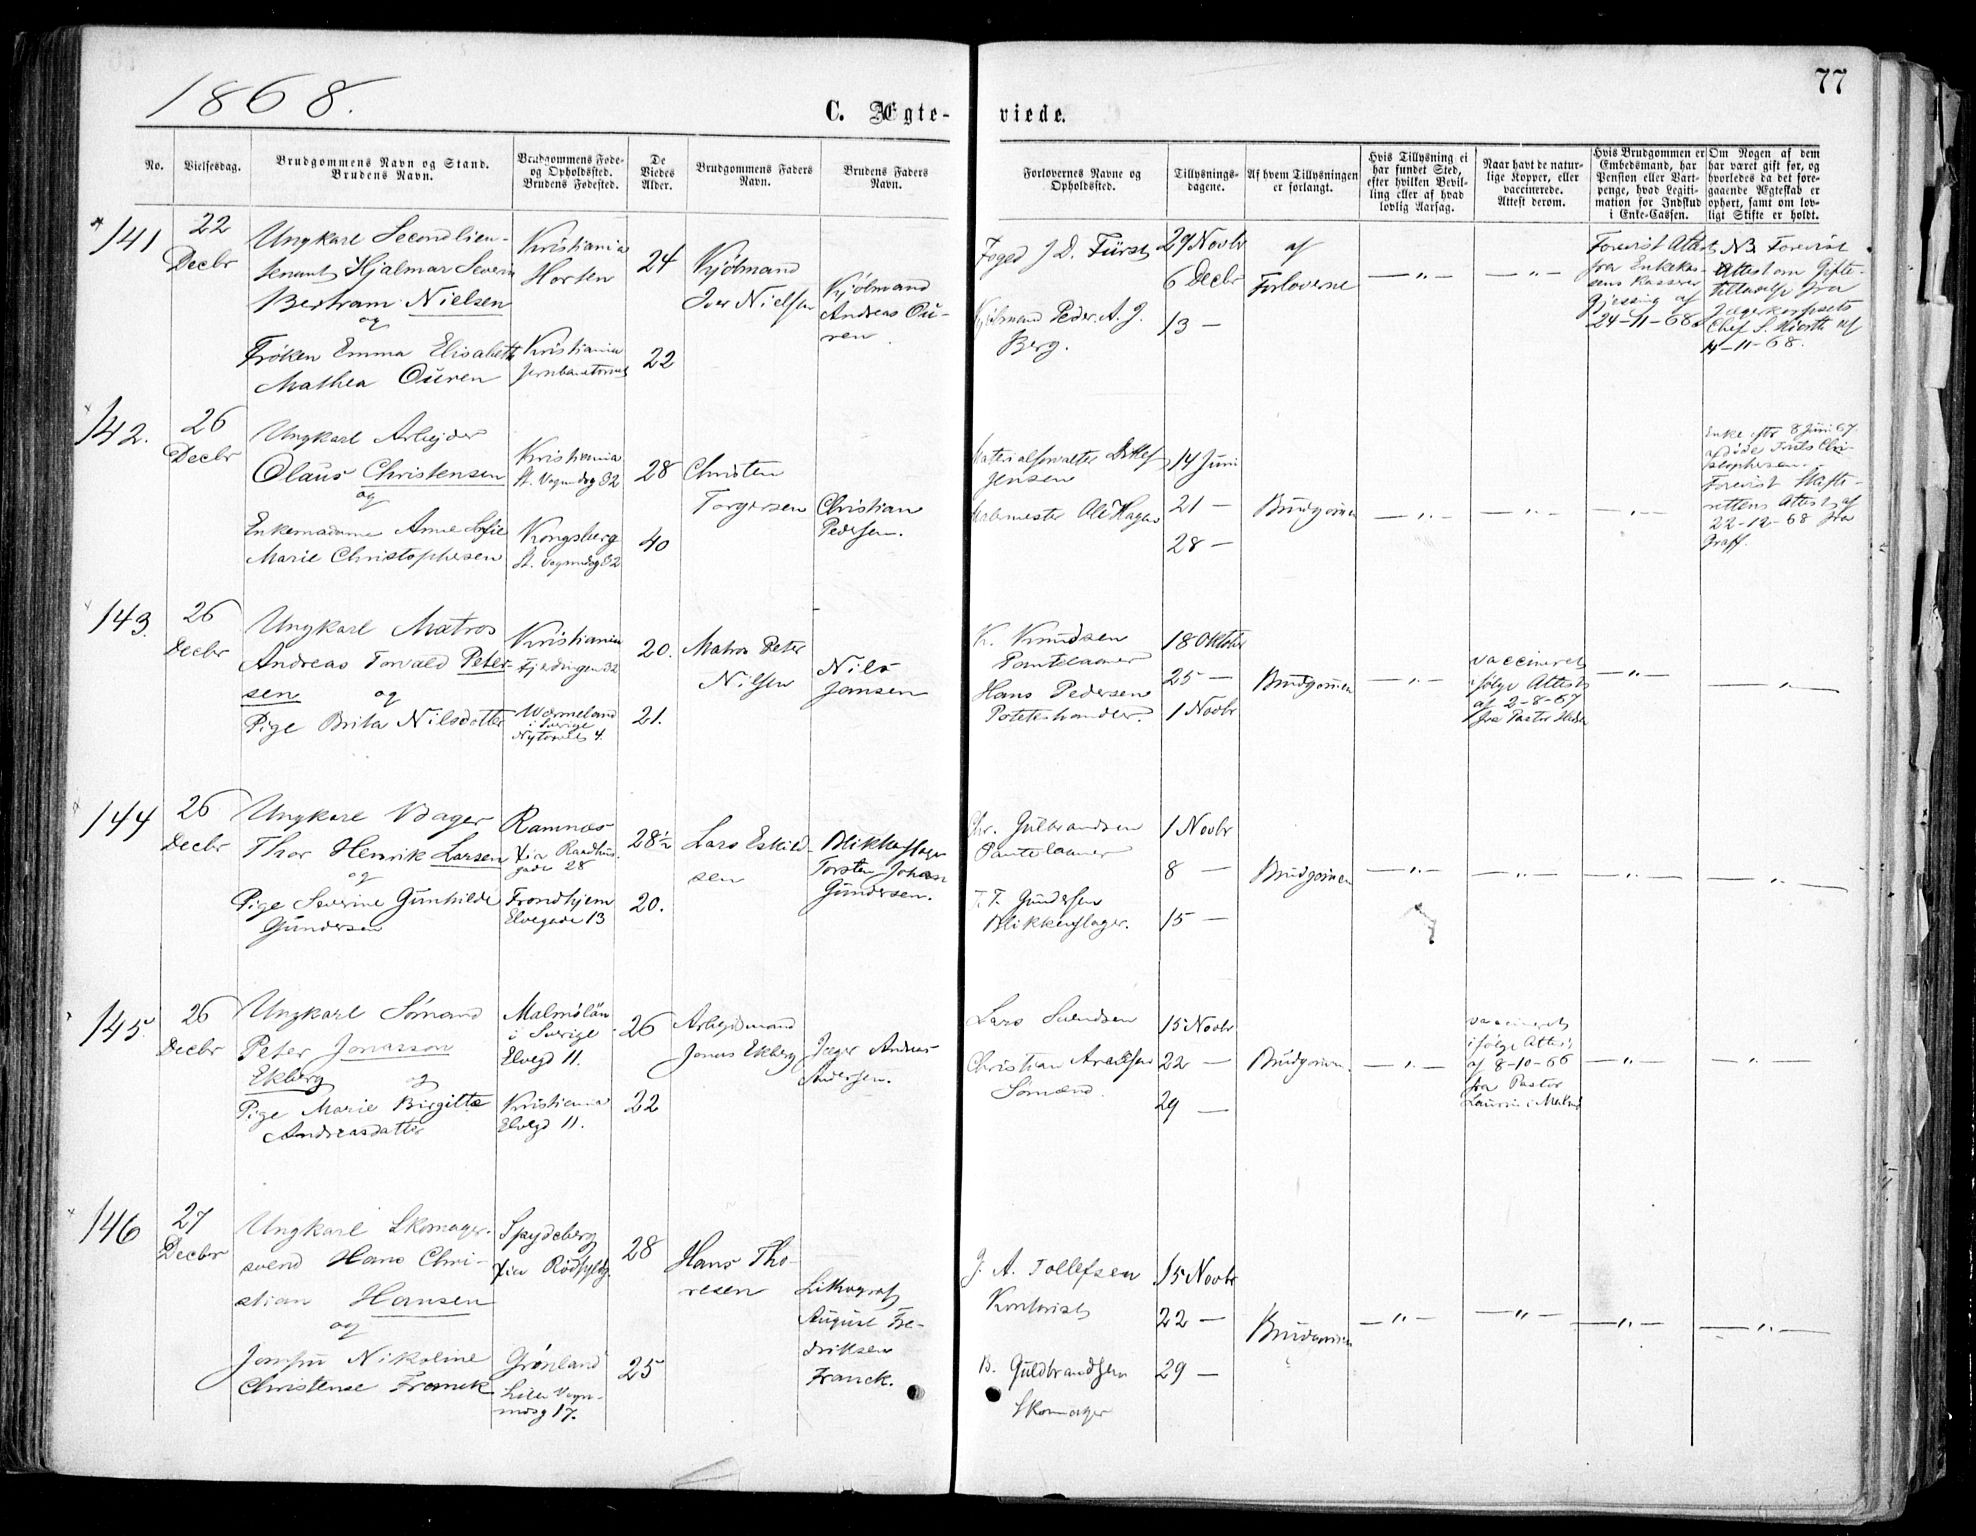 1868.
77
C. Ægte-
viede.
No.
Vielsesdag.
Brudgommens Navn og Stand.
Brudens Navn.
Brudgommens Føde-
og Opholdssted.
Brudens Fødested.
De
Viedes
Alder.
Brudgommens Faders
Navn.
Brudens Faders
Navn.
Forlovernes Navne og
Opholdssted.
Tillysnings-
dagene.
Af hvem Tillysningen
er forlangt.
Hvis Tillysning ei
har fundet Sted,
efter hvilken Bevil-
ling eller af hvad
lovlig Aarsag.
Naar havt de natur-
lige Kopper, eller
vaccinerede.
Attest derom.
Hvis Brudgommen er
Embedsmand, har
Pension eller Vart-
penge, hvad Legiti-
mation for Indskud
i Enke-Cassen.
Om Nogen af dem
har været gift før, og
hvorledes da det fore-
gaaende Ægteskab er
ophørt, samt om lov-
ligt Skifte er holdt.
141
22
Decbr
Ungkarl Secondlieu-
tenant Hjalmar Severin
Bertram Nielsen
og
Frøken Emma Elisabeth
Mathea Ouren
Kristiania
Horten
Kristiania
24
22
Kjøbmand
Iver Nielsen
Kjøbmand
Andreas Ou-
ren
Foged J. D. Fürst
Kjøbmand Peder A. J.
Berg.
29 Novbr
6 Decbr
13 —
af
Forloverne
— „ —
— „ —
Forevist Attest
fra Enkekas-
sens Kasserer
Gjessing af
24-11-68
NB. Forevist
Attest om Gifte-
tilladelse fra
Jægerkorpsets
Chef S. Hiorth af
14-11-68.
142.
26
Decbr
Ungkarl Arbejder
Olaus Christensen
og
Enkemadame Anne Sofie
Marie Christophersen
Kristiania
St. Vognmdsg 32
Kongsberg
St. Vognmdsg 32
28
40
Christen
Torgersen
Christian
Pedersen.
Materialforvalter Ditlef
Jensen
Malermester Ole Hagen
14 Juni
21 —
28 —
Brudgommen
— „ —
— „ —
— „ —
Enke efter 8 Juni 67
afdøde Nils Chri-
stophersen.
Forevist Skifte-
rettens Attest af
22-12-68 fra
Graff.
143.
26
Decbr
Ungkarl Matros
Andreas Torvald Peter-
sen og
Pige Brita Nilsdotter
Kristiania
Fjerdingen 32
Wermeland
i Sverige
Nytorvet 4.
20.
21.
Matros Peter
Nilsen
Nils
Jansen
K. Knudsen
Pantelaaner
Hans Pedersen
Poteteshandler.
18 Oktober
25 —
1 Novbr
Brudgommen
— „ —
vaccineret
ifølge Attest
af 2-8-67
fra Pastor
— „ —
— „ —
144
26
Decbr
Ungkarl Bager
Thor Henrik Larsen
og
Pige Severine Gunhilde
Gundersen
Ramnæs
Xia Raadhus-
gade 28
Trondhjem
Elvegade 13
28½
20.
Lars Eskild-
sen
Blikkenslager
Torsten Johan
Gundersen.
Chr. Gulbrandsen
Pantelaaner
T. F. Gundersen
Blikkenslager.
1 Novbr
8 —
15 —
Brudgommen
— „ —
— „ —
— „ —
— „ —
145.
26
Decbr
Ungkarl Sømand
Peter Jonasson
Ekberg og
Pige Marie Birgitte
Andreasdatter
Malmølän
i Sverige
Elvegd 11.
Kristiania
Elvegd 11.
26
22
Arbejdsmand
Jonas Ekberg
Jæger Andreas
Andersen.
Lars Svendsen
Christian
Sømænd.
15 Novbr
22 —
29 —
Brudgommen.
— „ —
vaccineret
ifølge Attest
af 8-10-66
fra Pastor
Laurin i Malmø
— „ —
— „ —
146
27
Decbr
Ungkarl Skomager-
svend Hans Chri-
stian Hansen
og
Jomfru Nikoline
Christense Franck
Spydeberg
Xia Rødfyldg.
Grønland
Lille Vogn-
mdsg 17.
28
25
Hans Tho-
resen
Lithograf
August Fre-
driksen
Franck.
J. A. Tollefsen
Kontorist
B. Guldbrandsen
Skomager
15 Novbr
22 —
29 —
Brudgommen
— „ —
— „ —
— „ —
— „ —